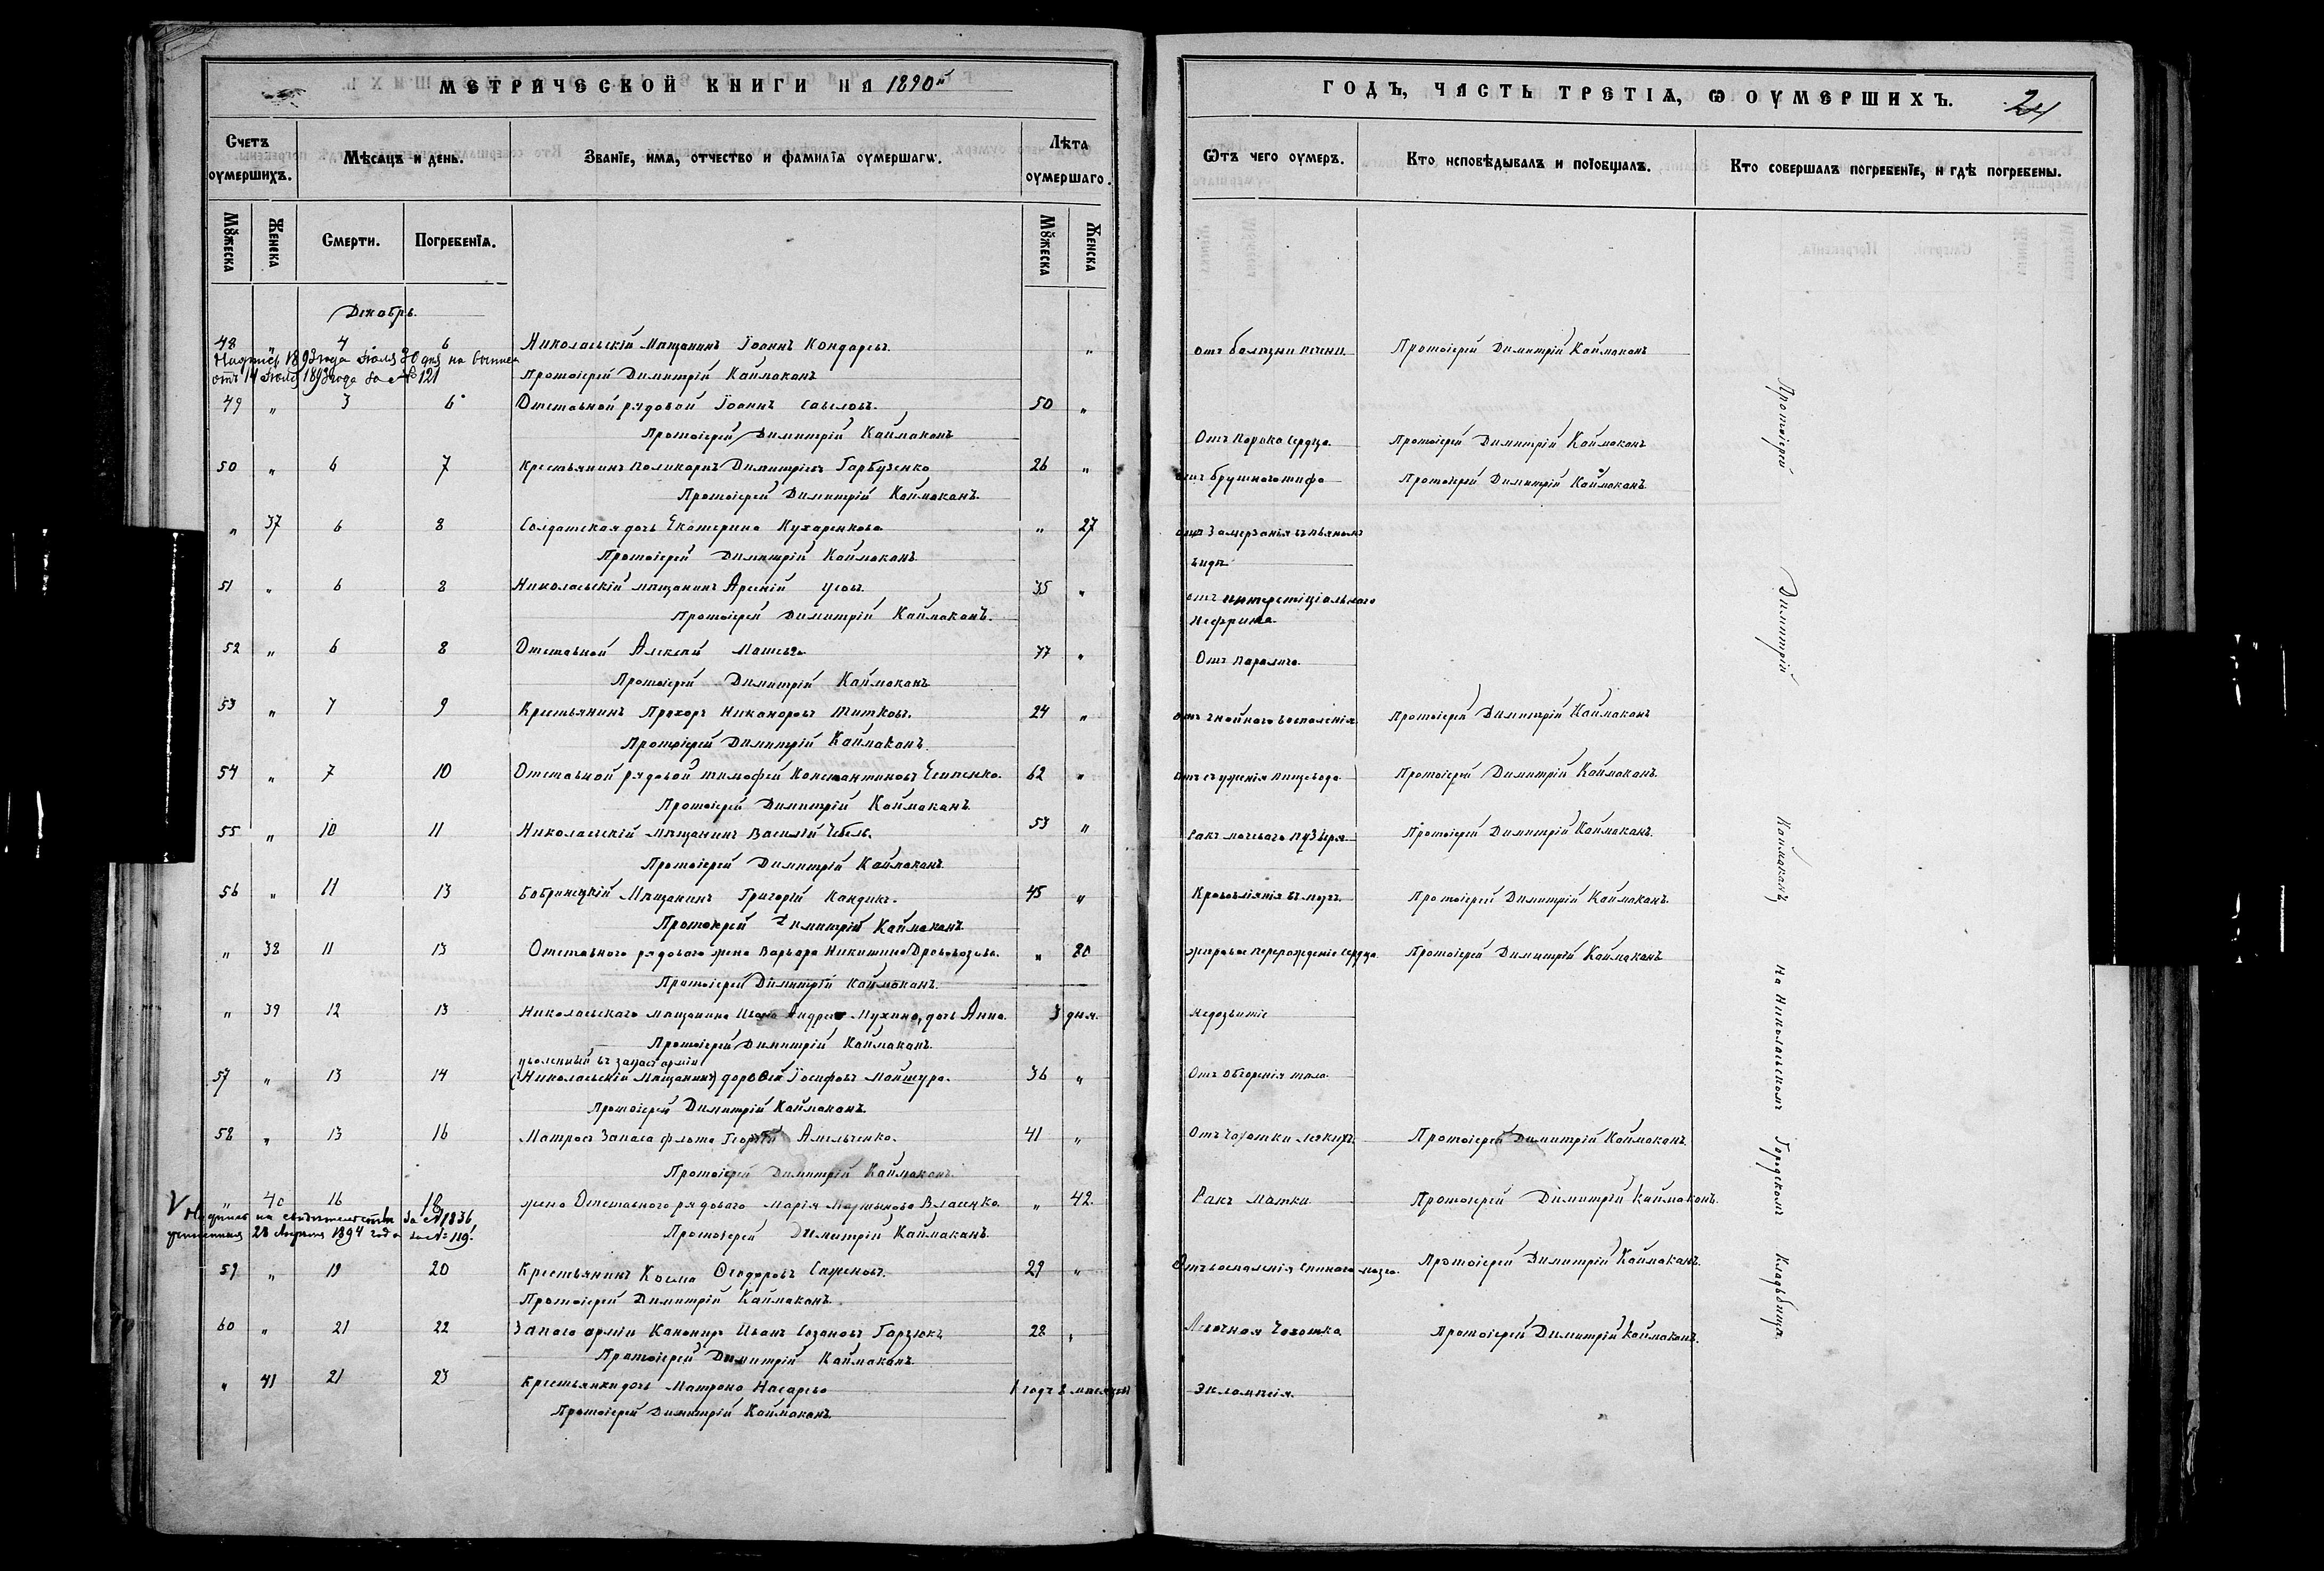 МЕТРИЧЕСКОЙ КНИГИ НА 1890й
ГОДЪ, ЧАСТЬ ТРЕТІѦ, Ѡ ОУМЕРШИХЪ.
Счетъ оумершихъ.
Мѣсѧцъ и день.
Званїе, имѧ, отчество и фамилїѧ оумершагѡ.
Лѣта оумершаго.
Ѿтъ чего оумеръ.
Кто исповѣдывалъ и прїобщалъ.
Кто совершалъ погребенїе, и гдѣ погребены.
Мꙋжеска
Женска
Смерти.
Погребенїѧ.
Мꙋжеска
Женска
Декабрь.
48 " 4 6 Николаевскій Мѣщанинъ Іоаннъ Кондаревъ. " отъ болѣзни печени Протоіерей Димитрій Каймаканъ
Надпись 1893 года Іюля 20 дня на
отъ 14 Іюля 1893 года за № 121
Протоіерей Димитрій Каймаканъ
49 " 3 6 Отставной рядовой Іоаннъ Савеловъ. 50 "
Протоіерей Димитрій Каймаканъ Отъ Порока сердца. Протоіерей Димитрій Каймаканъ
50 " 6 7 Крестьянинъ Поликарпъ Димитріевъ Гарбузенко 26 " отъ брушного тифа Протоіерей Димитрій Каймаканъ
Протоіерей Димитрій Каймаканъ.
" 37 6 8 Солдатская дочь Екатерина Кухаренкова " 27 отъ Замерзанья въ пьяномъ
Протоіерей Димитрій Каймаканъ. видѣ
51 " 6 8 Николаевскій мѣщанинъ Арсеній Усовъ. 35 " отъ интерстиціальнаго
Протоіерей Димитрій Каймаканъ. нефрита.
52 " 6 8 Отставной Алексѣй 77 " Отъ паралича.
Протоіерей Димитрій Каймаканъ
53 " 7 9 Крестьянинъ Прохоръ Никаноровъ Титковъ. 24 " отъ гнойного воспаленія Протоіерей Димитрій Каймаканъ
Протоіерей Димитрій Каймаканъ.
54 " 7 10 Отставной рядовой Тимофей Константиновъ Есипенко. 62 " отъ съуженія пищевода Протоіерей Димитрій Каймаканъ.
Протоіерей Димитрій Каймаканъ.
55 " 10 11 Николаевскій мѣщанинъ Василій Чебель. 53 " Ракъ мочевого пузыря Протоіерей Димитрій Каймаканъ.
Протоіерей Димитрій Каймаканъ.
56 " 11 13 Бобринецкій Мѣщанинъ Григорій Кандига. 45 " Кровоизліянія въ мозгъ. Протоіерей Димитрій Каймаканъ.
Протоіерей Димитрій Каймаканъ.
" 38 11 13 Отставного рядового жена Варвара Никитина Дрововозова. " 80 жировое перерожденіе сердца Протоіерей Димитрій Каймаканъ
Протоіерей Димитрій Каймаканъ.
" 39 12 13 Николаевскаго мѣщанина Ивана Андреева Мухина, дочь Анна. 3 дня. недозвитіе
Протоіерей Димитрій Каймаканъ.
уволенный въ запасъ арміи
57 " 13 14 (Николаевскій Мѣщанинъ) Дороѳей Іосифовъ Маншура. 36 " Отъ обгоренія тела.
Протоіерей Димитрій Каймаканъ.
58 " 13 16 Матросъ Запаса флота Георгій Амельченко. 41 " Отъ Чахотки легкихъ. Протоіерей Димитрій Каймаканъ.
Протоіерей Димитрій Каймаканъ.
" 40 16 18 жена Отставного рядового Марія Мартынова Власенко. " 42. Ракъ матки. Протоіерей Димитрій Каймаканъ.
Надпись на свидѣтельствѣ за № 1836
28 Апрѣля 1894 года за № 119.
Протоіерей Димитрій Каймаканъ.
59 " 19 20 Крестьянинъ Косма Ѳеодоровъ Саженовъ. 29 " Отъ воспаленія спинного мозга. Протоіерей Димитрій Каймаканъ.
Протоіерей Димитрій Каймаканъ.
60 " 21 22 Запаса арміи Канониръ Иванъ Созановъ Гарзюкъ 28 " Легочная Чахотка Протоіерей Димитрій Каймаканъ.
Протоіерей Димитрій Каймаканъ.
" 41 21 23 Крестьянки дочь Матрона Насарева 1 годъ 2 мѣсяцовъ Экламсія.
Протоіерей Димитрій Каймаканъ.
Протоіерей Димитрій Каймаканъ На Николаевскомъ Городскомъ Кладьбища.